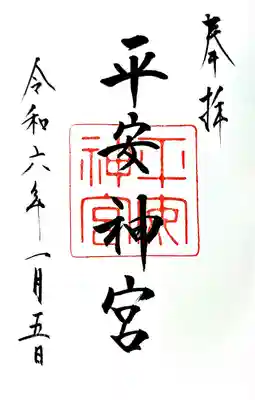 奉拝
平安神宮
平安
神宮
令和六年一月五日